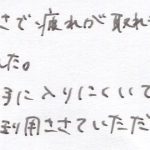 さで疲れが取れ
した。
手に入りにくいて
利用させていただ